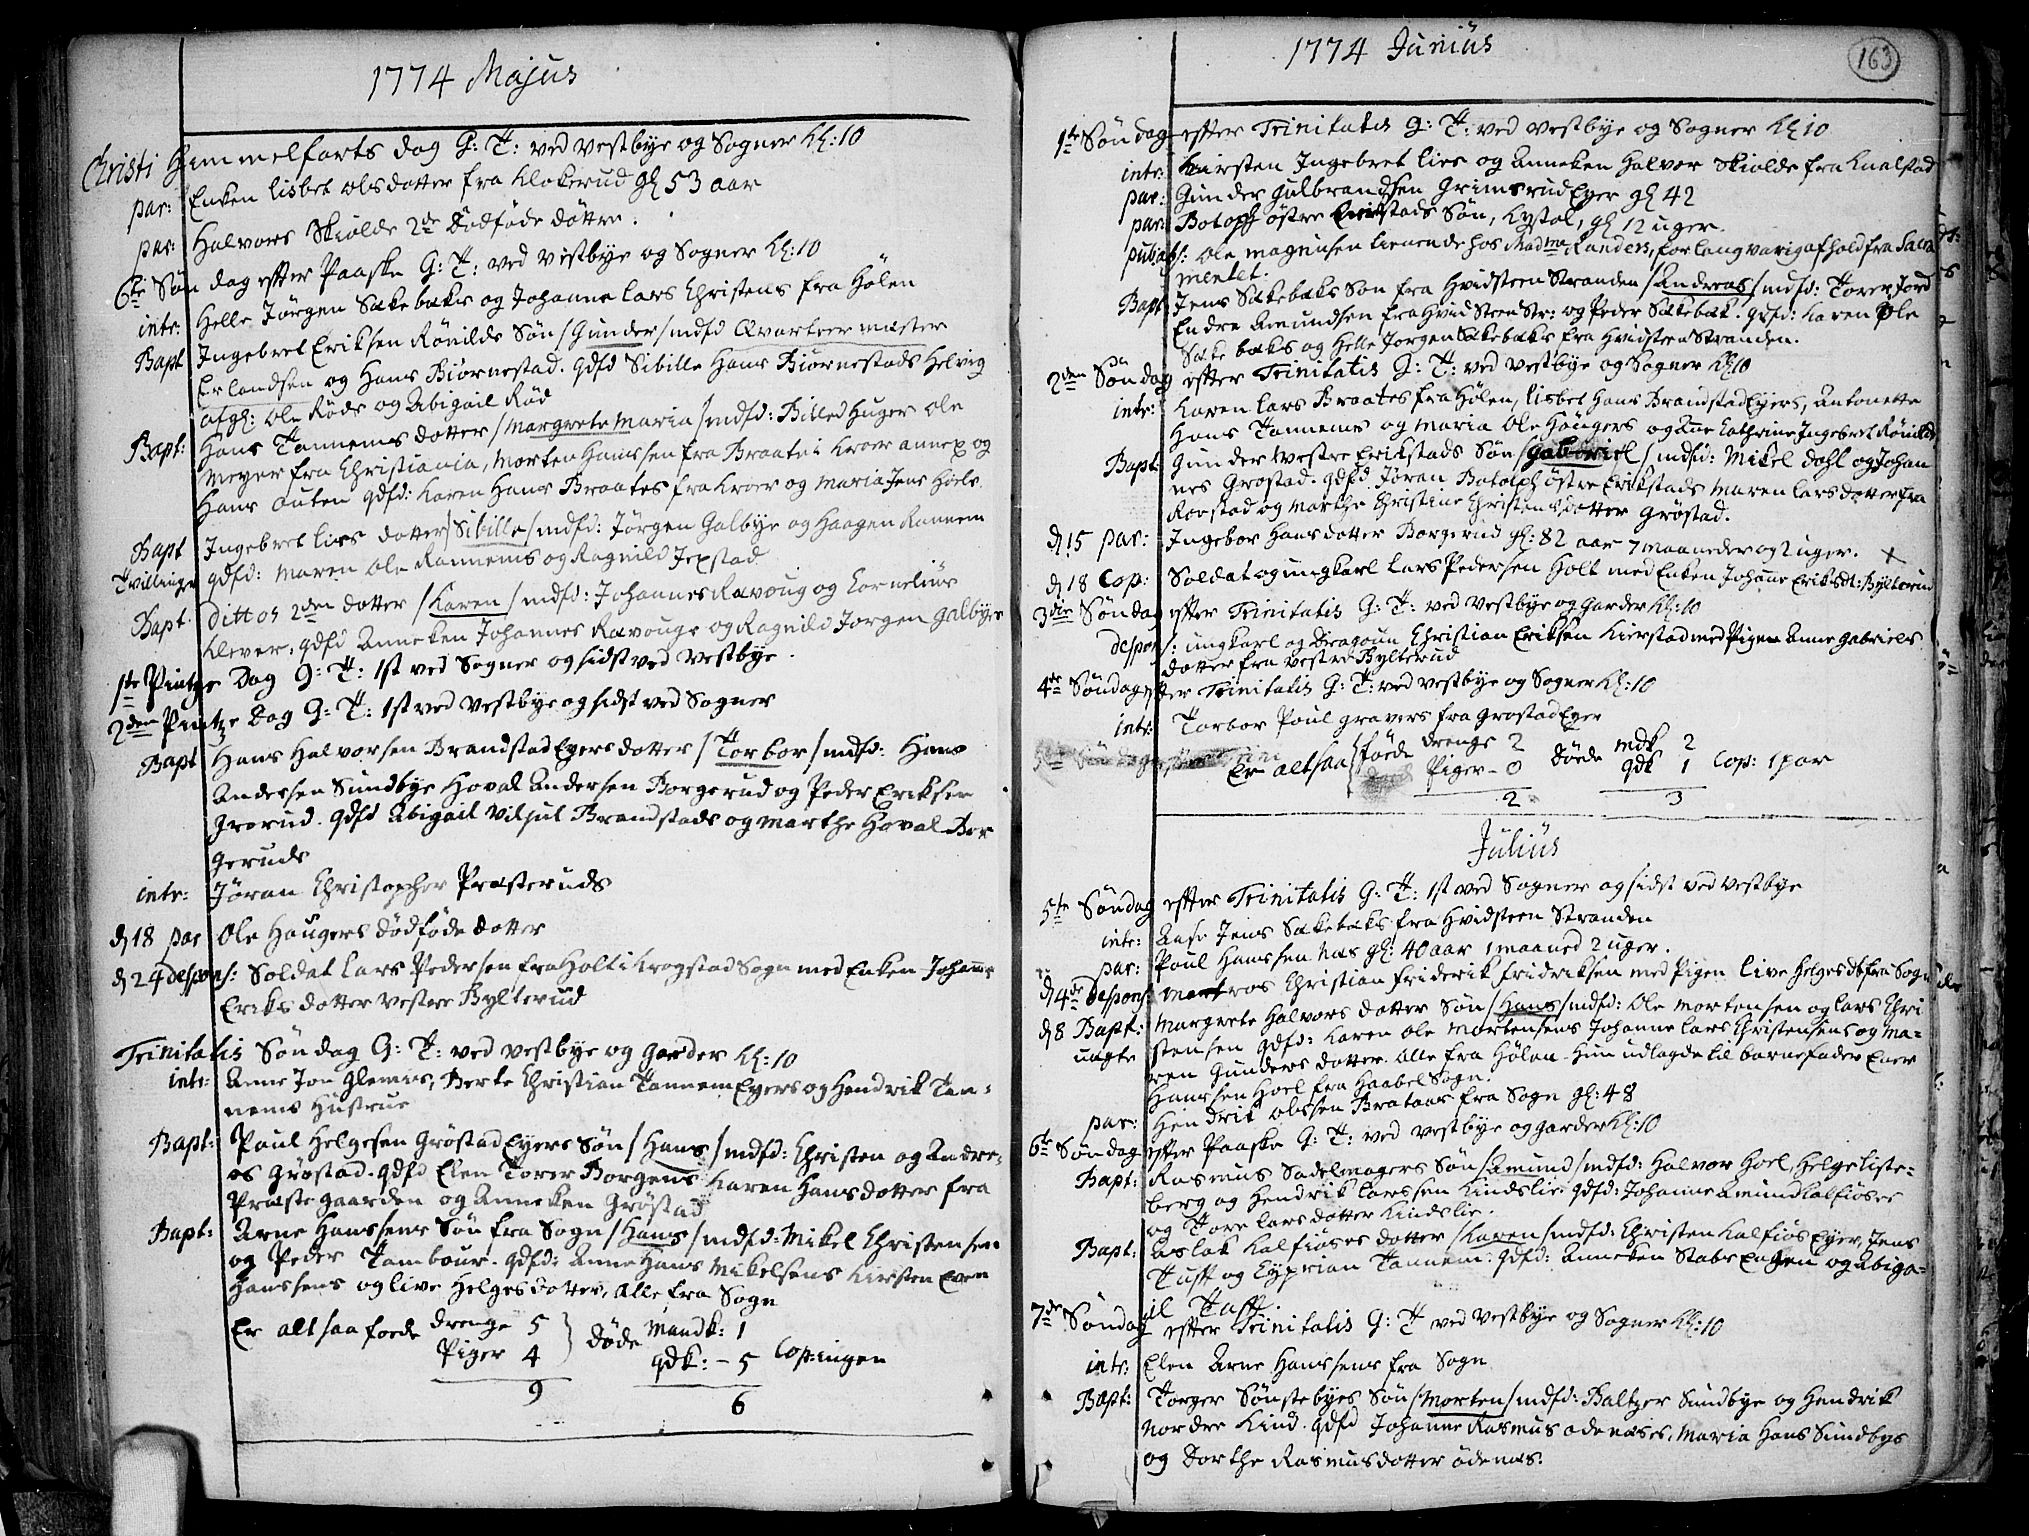 1774 Majus
Christi Himmelfarts dag G: T: ved Vestbye og Sogner Kl: 10
par: Enken Lisbet Olsdatter fra Klokerud gl 53 aar
par: Halvors Skiolde 2de Dødføde døttre.
6te Søndag effter Paaske G: T: ved Vestbye og Sogner Kl: 10
intr: Helle Jørgen Sækebæks og Johanne Lars Christens fra Hølen
Bapt Ingebret Eriksen Rønilds Søn / Gunder / mdfd Qvarteermæster
Erlandsen og Hans Biørnestad. qdfd Sibille Hans Biørnestads Helvig
afgl: Ole Røds og Abigail Rød
Bapt: Hans Tannems datter / Margrete Maria / mdfd: Billedhuger Ole
Meyer fra Christiania, Morten Hanssen fra Braate i Kroer annex og
Hans Outen qdfd: Karen Hans Braates fra Kroer og Maria Jens Hoels
Bapt Ingebret Lies datter / Sibille / mdfd: Jørgen Galbye og Haagen Rannem
Tvillinger qdfd: Maren Ole Rannems og Ragnild Jexstad
Bapt dittos 2den datter / Karen / mdfd: Johannes Ravoug og Cornelius
Klever. qdfd Anneken Johannes Ravougs og Ragnild Jørgen Galbyes
1ste Pintze Dag G: T: 1st ved Sogner og sidst ved Vestbye.
2den Pintze Dag G: T: 1st ved Vestbye og sidst ved Sogner
Bapt Hans Halvorsen Brandstad Eyers datter / Torbor / mdfd: Hans
Andersen Sundbye Hoval Andersen Borgerud og Peder Eriksen
Grorud. qdfd Abigail Viljul Brandstads og Marthe Hoval Bor
geruds
intr: Jøran Christopher Præsteruds
d 18 par Ole Haugers dødføde datter
d 24 despons: Soldat Lars Pedersen fra Holt i Krogstad Sogn med Enken Johanne
Eriks datter Vestre Bylterud
Trinitatis Søndag G: T: ved Vestbye og Garder Kl: 10
intr: Anne Jon Glemis, Berte Christian Tannem Eyers og Hendrik Tan-
nems Hustrue
Bapt: Paul Helgesen Grøstad Eyers Søn / Hans / mdfd: Christen og Andre-
as Grøstad. qdfd Elen Torer Borgens Karen Hansdatter fra
Præstegaarden og Anneken Grøstad
Bapt: Arne Hanssens Søn fra Sogn / Hans / mdfd: Mikel Christensen
og Peder Tambour. qdfd: Anne Hans Mikelsens Kirsten Even
Hanssens og Live Helgesdatter, alle fra Sogn
Er altsaa føde drenge 5 døde Mandk: 1
Piger 4 qdk: - 5 Cop: ingen
9 6
1774 Junius
163
1te Søndag effter Trinitatis G: T: ved Vestbye og Sogner Kl 10
intr: Kirsten Ingebret Lies og Anneken Halvor Skiolde fra Knalstad
par: Gunder Gulbrandsen Grimsrud Eyer gl 42
par: Botolph østre Erikstads Søn, Kystol, gl 12 uger.
pub: abs: Ole Magnusen tienende hos Madme Randers, for langvarig afhold fra Sacra
mentet.
Bapt Jens Sækebæks Søn fra Hvidsteen Stranden / Andreas / mdfd: Torer Jord
Endre Amundsen fra Hvidsteen Str: og Peder Sækebæk. qdfd: Karen Ole
Sækebæks og Helle Jørgen Sækebæks fra Hvidsteen Stranden.
2den Søndag effter Trinitatis G: T: ved Vestbye og Sogner Kl 10
intr: Karen Lars Braates fra Hølen, Lisbet Hans Brandstad Eyers, Antonette
Hans Tannems og Maria Ole Haugers og Ane Cathrine Ingebret Rønilds
Bapt: Gunder Vestre Erikstads Søn / Gabriel / mdfd: Mikel Dahl og Johan
nes Grostad. qdfd. Jøran Botolph østre Erikstads Maren Larsdatter fra
Rorstad og Marthe Christine Christensdatter Grøstad.
d 15 par: Ingebor Hansdatter Borgerud gl: 82 aar 7 maaneder og 2 uger. x
d 18 Cop: Soldat og ungkarl Lars Pedersen Holt med Enken Johanne Eriksdt: Bylterud
3die Søndag effter Trinitatis G: T: ved Vestbye og Garder Kl: 10
despons: ungkarl og Dragoun Christian Eriksen Kierstad med Pigen Anne Gabriels
datter fra Vestre Bylterud
4de Søndag effter Trinitatis G: T: ved Vestbye og Sogner Kl: 10
intr: Torbor Poul Gravers fra Grostad Eyer
Er altsaa føde drenge 2 døde mdk 2
Piger - 0 qdk 1 Cop: 1 par
2 3
Julius
5te Søndag effter Trinitatis G: T: 1st ved Sogner og sidst ved Vestbye
intr: Aase Jens Sækebæks fra Hvidsteen Stranden
par: Poul Hanssen Næs gl: 40 aar 1 maaned 2 uger.
d 4de despons: Matros Christian Friderik Fridriksen med Pigen Live Helgesdt fra Sogn
d 8 Bapt: Margrete Halvors datter Søn / Hans / mdfd: Ole Mortensen og Lars Chri
uægte stensen qdfd: Karen Ole Mortensens Johanne Lars Christensens og Ma-
ren Gunders datter. Alle fra Hølen. Hun udlagde til barnefader Ener
Hanssen Hoel fra Haabel Sogn.
par: Hendrik Olssen Brataas fra Sogn gl: 48
6te Søndag effter Paaske G: T: ved Vestbye og Garder Kl: 10
Bapt: Rasmus Sadelmagers Søn / Amund / mdfd: Halvor Hoel, Helge Liste-
berg og Hendrik Larssen Kindslie. qdfd: Johanne Amund Kalfioses
og Tore Larsdatter Kindslie.
Bapt: Aslak Kalfioses datter / Karen / mdfd: Christen Kalfios Eyer, Jens
Tufft og Cyprian Tannem. qdfd: Anneken Stabs Engen og Abiga-
il Tufft.
7de Søndag effter Trinitatis G: T ved Vestbye og Sogner Kl: 10
intr: Elen Arne Hanssens fra Sogn
Bapt: Torger Sønstebyes Søn / Morten / mdfd: Baltzer Sundbye og Hendrik
Nordre Kind. qdfd Johanne Rasmus Odenæses, Maria Hans Sundbys
og Dorthe Rasmusdatter Ødenæs.